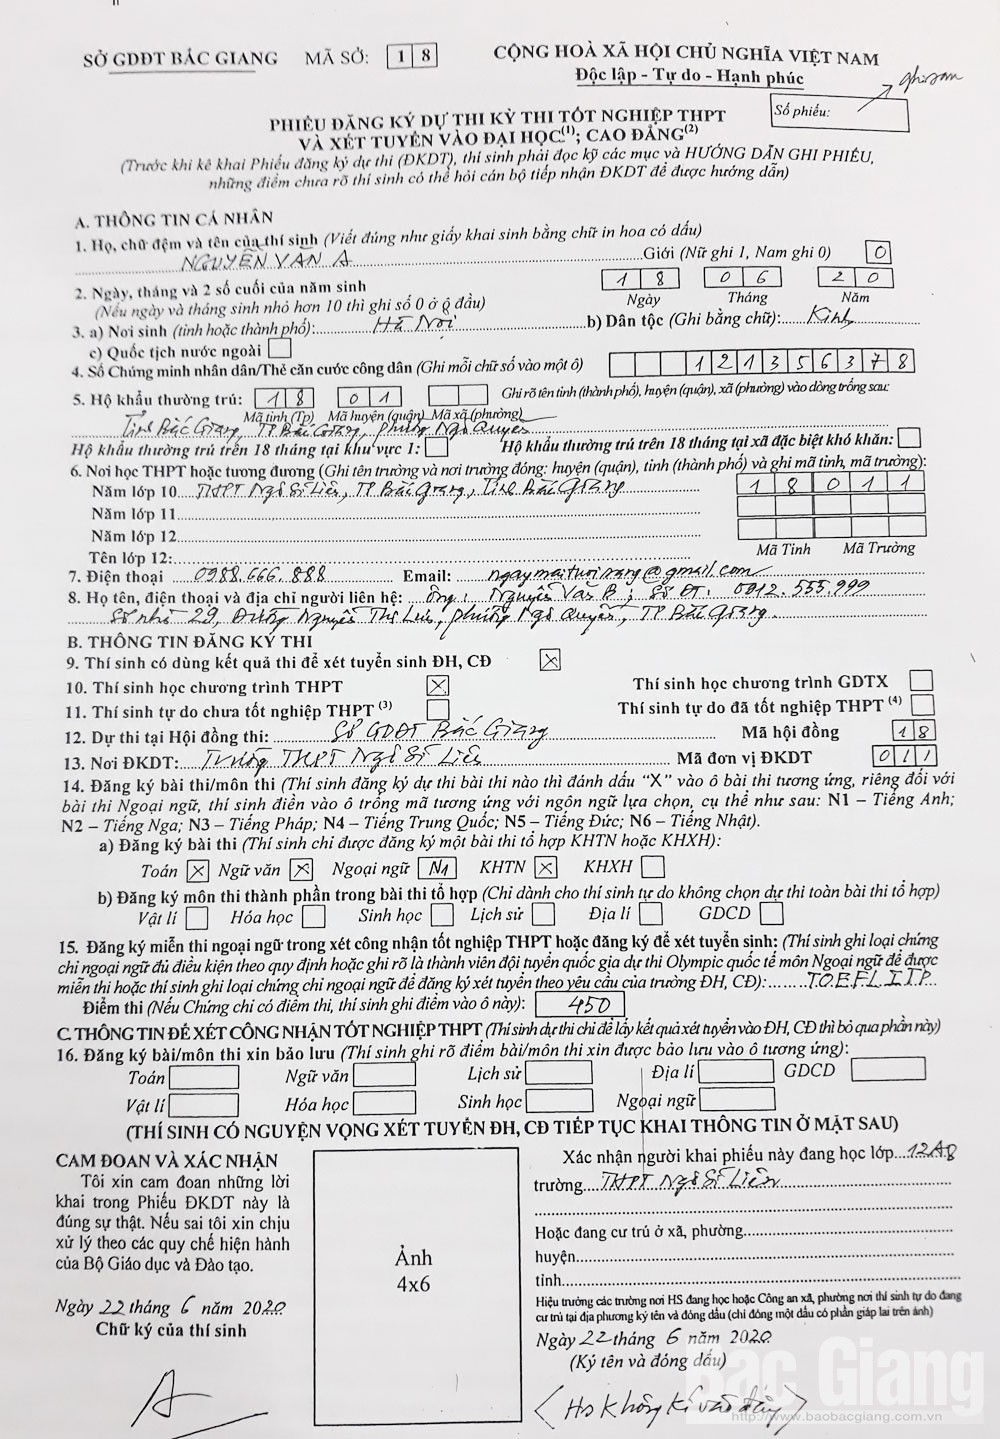 SỞ GDĐT BẮC GIANG MÃ SỞ: 1 8 CỘNG HOÀ XÃ HỘI CHỦ NGHĨA VIỆT NAM
Độc lập - Tự do - Hạnh phúc
ghi sau
Số phiếu:
PHIẾU ĐĂNG KÝ DỰ THI KỲ THI TỐT NGHIỆP THPT
VÀ XÉT TUYỂN VÀO ĐẠI HỌC(1); CAO ĐẲNG(2)
(Trước khi kê khai Phiếu đăng ký dự thi (ĐKDT), thí sinh phải đọc kỹ các mục và HƯỚNG DẪN GHI PHIẾU,
những điểm chưa rõ thí sinh có thể hỏi cán bộ tiếp nhận ĐKDT để được hướng dẫn)
A. THÔNG TIN CÁ NHÂN
1. Họ, chữ đệm và tên của thí sinh (Viết đúng như giấy khai sinh bằng chữ in hoa có dấu)
NGUYỄN VĂN A Giới (Nữ ghi 1, Nam ghi 0) 0
2. Ngày, tháng và 2 số cuối của năm sinh 1 8 0 6 2 0
(Nếu ngày và tháng sinh nhỏ hơn 10 thì ghi số 0 ở ô đầu) Ngày Tháng Năm
3. a) Nơi sinh (tỉnh hoặc thành phố): Hà Nội b) Dân tộc (Ghi bằng chữ): Kinh
c) Quốc tịch nước ngoài
4. Số Chứng minh nhân dân/Thẻ căn cước công dân (Ghi mỗi chữ số vào một ô) 1 2 1 3 5 6 3 7 8
5. Hộ khẩu thường trú: 1 8 0 1 Ghi rõ tên tỉnh (thành phố), huyện (quận), xã (phường) vào dòng trống sau:
Mã tỉnh (Tp) Mã huyện (quận) Mã xã (phường)
Tỉnh Bắc Giang, TP Bắc Giang, phường Ngô Quyền
Hộ khẩu thường trú trên 18 tháng tại khu vực 1: Hộ khẩu thường trú trên 18 tháng tại xã đặc biệt khó khăn:
6. Nơi học THPT hoặc tương đương (Ghi tên trường và nơi trường đóng: huyện (quận), tỉnh (thành phố) và ghi mã tỉnh, mã trường):
Năm lớp 10 THPT Ngô Sĩ Liên, TP Bắc Giang, Tỉnh Bắc Giang 1 8 0 1 1
Năm lớp 11
Năm lớp 12
Tên lớp 12: Mã Tỉnh Mã Trường
7. Điện thoại 0988.666.888 Email: ngaymaituoisang@gmail.com
8. Họ tên, điện thoại và địa chỉ người liên hệ: Ông: Nguyễn Văn B; Số ĐT: 0912.555.999
Số nhà 29, Đường Nguyễn Thị Lưu, phường Ngô Quyền, TP Bắc Giang.
B. THÔNG TIN ĐĂNG KÝ THI
9. Thí sinh có dùng kết quả thi để xét tuyển sinh ĐH, CĐ X
10. Thí sinh học chương trình THPT X Thí sinh học chương trình GDTX
11. Thí sinh tự do chưa tốt nghiệp THPT (3) Thí sinh tự do đã tốt nghiệp THPT (4)
12. Dự thi tại Hội đồng thi: Sở GDĐT Bắc Giang Mã hội đồng 1 8
13. Nơi ĐKDT: Trường THPT Ngô Sĩ Liên Mã đơn vị ĐKDT 0 1 1
14. Đăng ký bài thi/môn thi (Thí sinh đăng ký dự thi bài thi nào thì đánh dấu “X” vào ô bài thi tương ứng, riêng đối với
bài thi Ngoại ngữ, thí sinh điền vào ô trống mã tương ứng với ngôn ngữ lựa chọn, cụ thể như sau: N1 – Tiếng Anh;
N2 – Tiếng Nga; N3 – Tiếng Pháp; N4 – Tiếng Trung Quốc; N5 – Tiếng Đức; N6 – Tiếng Nhật).
a) Đăng ký bài thi (Thí sinh chỉ được đăng ký một bài thi tổ hợp KHTN hoặc KHXH):
Toán X Ngữ văn X Ngoại ngữ N1 KHTN X KHXH
b) Đăng ký môn thi thành phần trong bài thi tổ hợp (Chỉ dành cho thí sinh tự do không chọn dự thi toàn bài thi tổ hợp)
Vật lí Hóa học Sinh học Lịch sử Địa lí GDCD
15. Đăng ký miễn thi ngoại ngữ trong xét công nhận tốt nghiệp THPT hoặc đăng ký để xét tuyển sinh: (Thí sinh ghi loại chứng
chỉ ngoại ngữ đủ điều kiện theo quy định hoặc ghi rõ là thành viên đội tuyển quốc gia dự thi Olympic quốc tế môn Ngoại ngữ để được
miễn thi hoặc thí sinh ghi loại chứng chỉ ngoại ngữ để đăng ký xét tuyển theo yêu cầu của trường ĐH, CĐ): TOEFL ITP
Điểm thi (Nếu Chứng chỉ có điểm thi, thí sinh ghi điểm vào ô này): 450
C. THÔNG TIN ĐỂ XÉT CÔNG NHẬN TỐT NGHIỆP THPT (Thí sinh dự thi chỉ để lấy kết quả xét tuyển vào ĐH, CĐ thì bỏ qua phần này)
16. Đăng ký bài/môn thi xin bảo lưu (Thí sinh ghi rõ điểm bài/môn thi xin được bảo lưu vào ô tương ứng):
Toán Ngữ văn Lịch sử Địa lí GDCD
Vật lí Hóa học Sinh học Ngoại ngữ
(THÍ SINH CÓ NGUYỆN VỌNG XÉT TUYỂN ĐH, CĐ TIẾP TỤC KHAI THÔNG TIN Ở MẶT SAU)
CAM ĐOAN VÀ XÁC NHẬN
Tôi xin cam đoan những lời
khai trong Phiếu ĐKDT này là
đúng sự thật. Nếu sai tôi xin chịu
xử lý theo các quy chế hiện hành
của Bộ Giáo dục và Đào tạo.
Ngày 22 tháng 6 năm 2020
Chữ ký của thí sinh
A
Ảnh
4x6
Xác nhận người khai phiếu này đang học lớp 12A8
trường THPT Ngô Sĩ Liên
Hoặc đang cư trú ở xã, phường
huyện
tỉnh
Hiệu trưởng các trường nơi HS đang học hoặc Công an xã, phường nơi thí sinh tự do đang
cư trú tại địa phương ký tên và đóng dấu (chỉ đóng một dấu có phần giáp lai trên ảnh)
Ngày 22 tháng 6 năm 2020
(Ký tên và đóng dấu)
(Hs không kí vào đây)
Bắc Giang
http://www.baobacgiang.com.vn